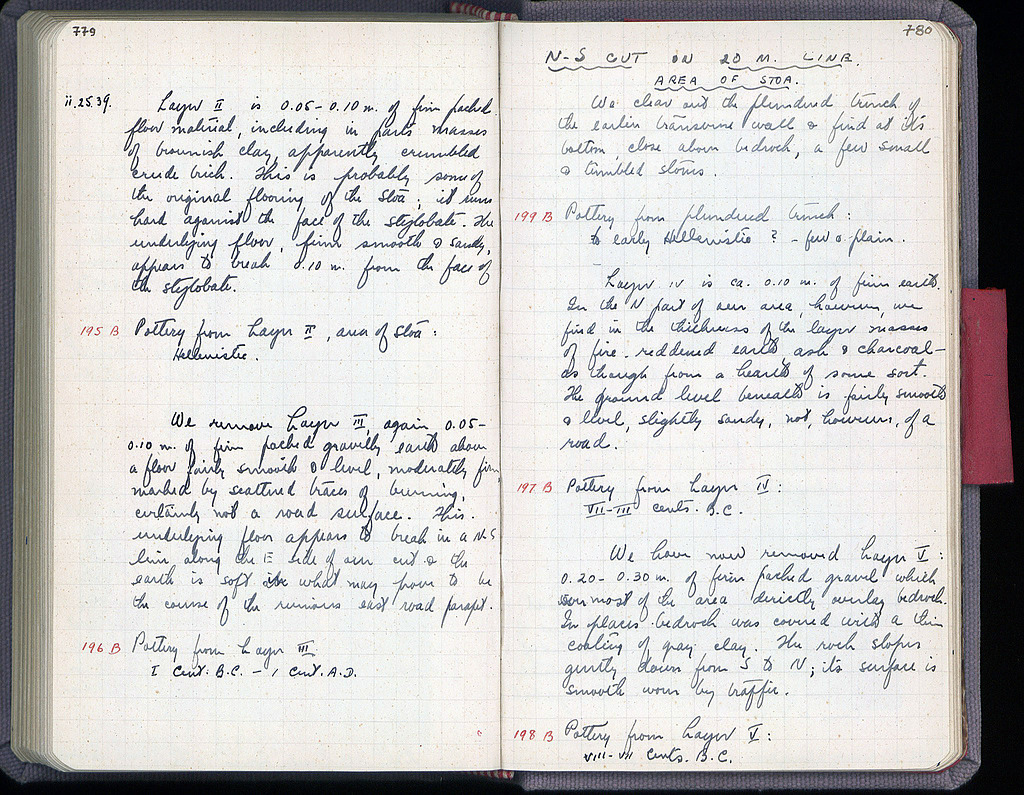 779
ii.25.39.
Layer II is 0.05-0.10 m. of firm packed
floor material, including in parts masses
of brownish clay, apparently crumbled
crude brick. This is probably some of
the original flooring of the Stoa; it runs
hard against the face of the stylobate. The
underlying floor, firm smooth & sandy,
appears to break 0.10 m. from the face of
the stylobate.
195 B Pottery from Layer II, area of Stoa:
Hellenistic.
We remove Layer III, again 0.05-
0.10 m. of firm packed gravelly earth above
a floor fairly smooth & level, moderately firm
marked by scattered traces of burning,
certainly not a road surface. This
underlying floor appears to break in a N-S
line along the E side of our cut & the
earth is soft in what may prove to be
the course of the ruinous east road parapet.
196 B Pottery from Layer III
I cent. B.C. - I cent. A.D.
780
N-S CUT ON 20 M. LINE.
AREA OF STOA.
We clear out the plundered trench of
the earlier transverse wall & find at its
bottom, close above bedrock, a few small
& tumbled stones.
199 B Pottery from plundered trench:
to early Hellenistic? - few & plain.
Layer IV is ca. 0.10 m. of firm earth.
In the N part of our area, however, we
find in the thickness of the layer masses
of fire-reddened earth, ash & charcoal -
as though from a hearth of some sort.
The ground level beneath is fairly smooth
& level, slightly sandy, not, however, of a
road.
197 B Pottery from Layer IV:
VII-III cents. B.C.
We have now removed Layer V:
0.20-0.30 m. of firm packed gravel which
over most of the area directly overlay bedrock.
In places bedrock was covered with a thin
coating of gray clay. The rock slopes
gently down from S to N; its surface is
smooth worn by traffic.
198 B Pottery from Layer V:
VIII-VII cents. B.C.